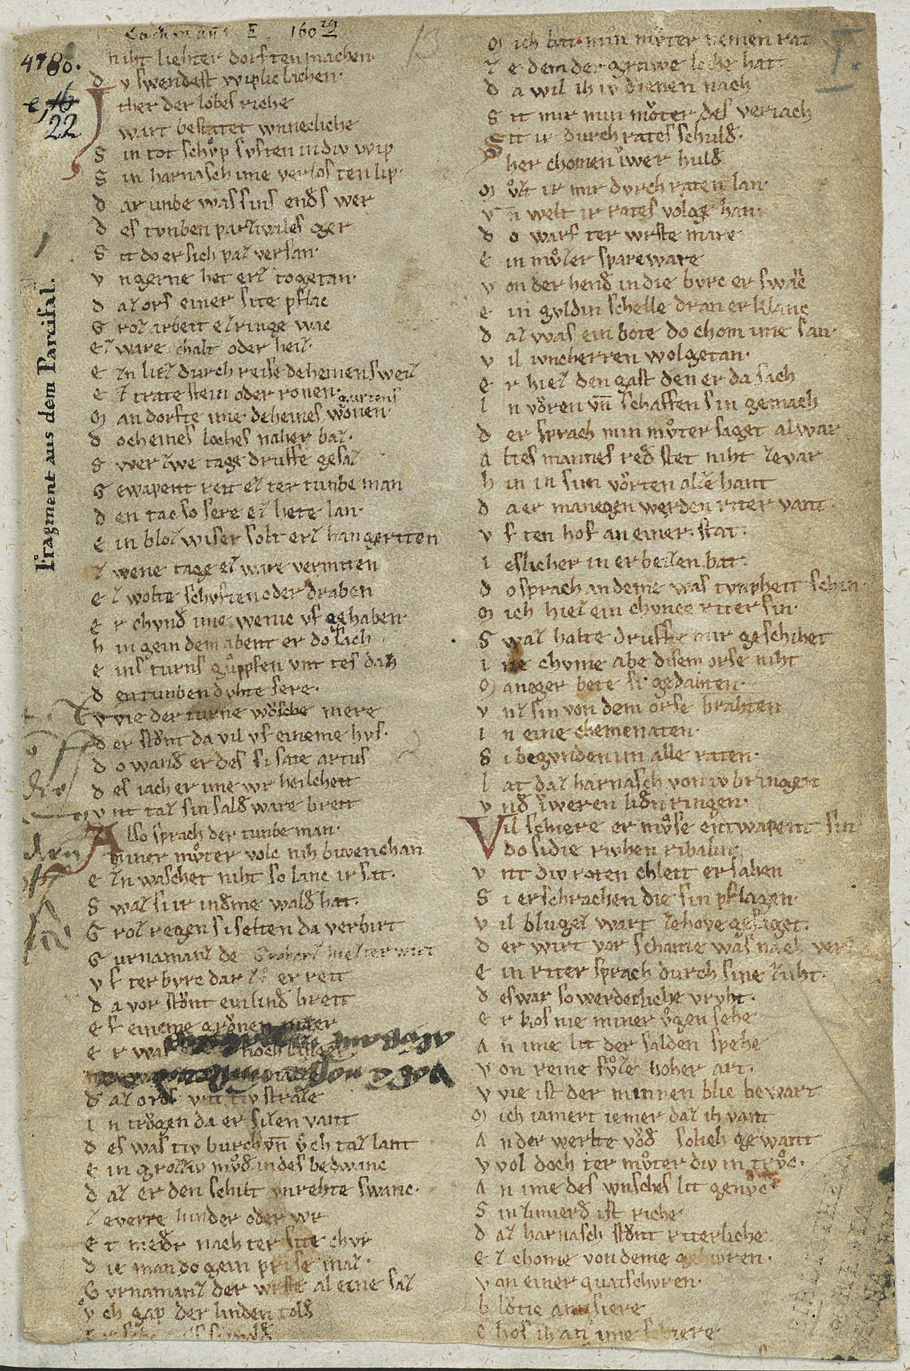 Lachmanns E. 160 24/2
4786.
22
Fragment aus dem Parcifal.
niht liehter dorften machen.
d v swendest wiplic lachen.
Jther der lobes riche
wart bestatet
S in tot schvp svften in div wip
S in harnasch ime verlos ten lip.
d ar vmbe was sins ends wer
d es tvmben parziuales ger
S it do er sich paz versan.
v ngerne het erz togetan.
d az ors einer site pflac
G roz arbeit ez ringe wac
ez ware chalt oder heiz.
e zn liez durch reise deheinen sweiz
e z trate stein oder ronen.
gurtens
m an dorfte ime deheines wonen
d ocheines loches naher baz.
S wer zwe tage drvffe gesaz
G ewapent reit ez ter tumbe man
d en tac so sere ez hete lan.
e in bloz wiser solt erz han geritten
z wene tage ez ware vermiten
e z wolte schvften oder draben
e r chvnd ime wenic vf gehaben.
h in gein dem abent er do sach
e ins turns gvppfen vnt tes dah
d en tumben dvhte sere.
w ie der turne wvhse mere
d er stvnt da vil vf eineme hvs.
d o wand er des si sate artus
d es iach er ime vvr heilcheit
v nt taz sin sald ware breit
Also sprach der tumbe man.
miner mvter volc nih bwen chan
e zn wachset niht so lanc ir sat.
S waz si ir in deme wald hat.
G roz regen si selten da verbirt
G urnamanz de Grohart hiez ter wirt
v f ter byrc dar zv er reit
d a vor stvnt ein lind breit
e f eineme grvnen anger
e r was
d az ors vnt tiv straze
i n trvgen da er sizen vant
d es was tiv burch vn vch taz lant
e in groziv mvd in des bedwanc
d az er den schilt vnrehte swanc.
z e verre hinder oder vvr
e t
d ie man do gein prise maz.
G vrnamanz der wrste al eine saz
v ch gap der linden tolde
m ich bat min mvter nemen rat
z e dem der grawe loche hat.
d a wil ih iv dienen nach
S it mir min mvter des veriach
Sit ir durch rates schuld.
her chomen iwer huld
m vzt ir mir dvrch raten lan.
v n welt ir rates volge han.
d o warf ter wrste mare
e in mvzer spareware
v on der hend in die byrc er swac
e in gvldin schelle dran er klanc
d az was ein bote do chom ime san.
v il iuncherren wolgetan.
e r hiez den gast den er da sach
i n vvren vn schaffen sin gemach
d er sprach min mvter saget al war
a ltes mannes red stet niht ze var
h in in sin vvrten alze hant
d a er manegen werden riter vant.
v f ten hof an einer stat.
i eslicher in erbeizen bat.
d o sprach an deme was tvmpheit schin
m ich hiez ein chvnec riter sin.
S waz halte drvffe mir geschihet
i ne chvme abe disem orse niht
m aneger bete si gedahten.
v nz sin von dem orse brahten
i n eine chemenaten.
S i begvnden im alle raten.
l at daz harnasch von iv bringen
v nd iweren liden ringen.
Vil schiere er mvse entwapent sin
do si die rivhen ribalin.
v nt div toren chleit ersahen
S i erschrachen die sin pflagen.
v il blugez wart ze hove gesaget.
d er wirt vor schame was nach ver
e in riter sprach durch sine zuht.
d eswar so werdechliche vruht.
e r kos nie miner vgen sehe
a n ime lit der salden spehe
v on reine svze hoher art.
v vie ist der minnen blic bewart
m ich iamert iemer daz ih vant
a n der werlte vrvd solch gewant
v vol doch ter mvter div in trvc.
a n ime des wnsches lit genvc
S in zimierd ist riche
d az harnasch stvnt riterliche
e z chome von deme gehivren.
v on einer quatschvren.
b lvtic amesiere
c hos ih an ime schiere